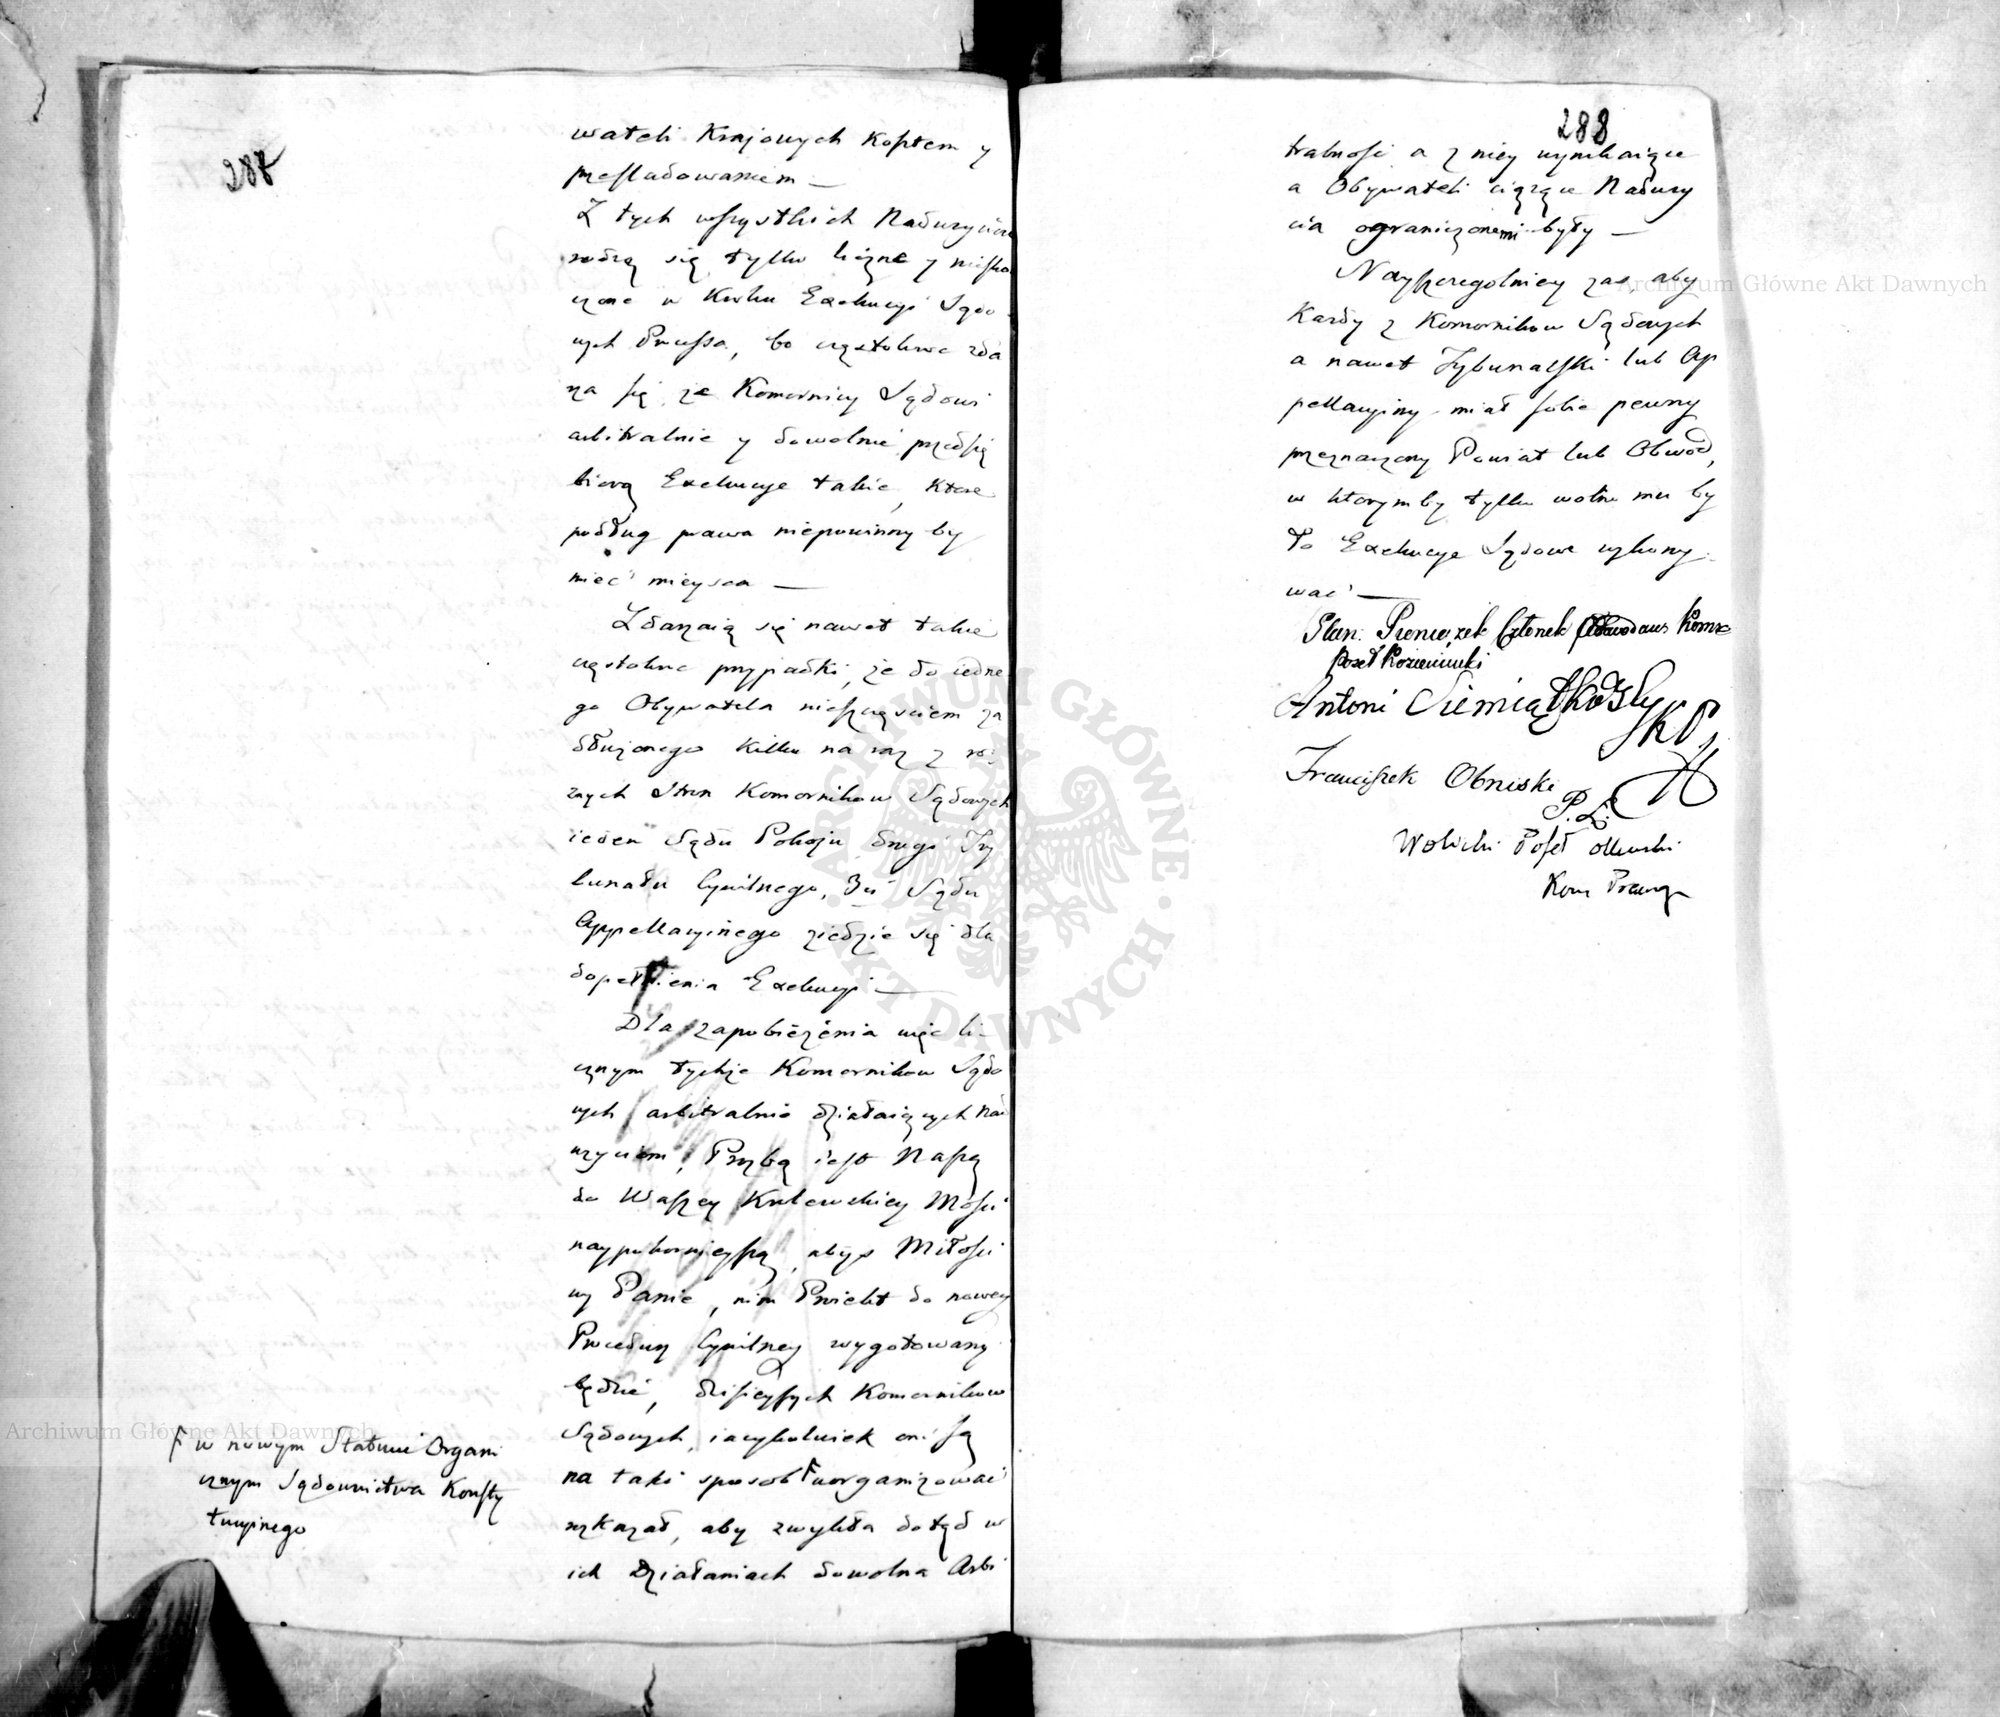 287
wateli Krajowych Kosztem y
przesladowaniem —
Z tych wszystkich Naduzyciow
rodzą się tylko liczne y niesko
czone w Kroku Exekucyi Sądo
wych Processa, bo częstokroc zda
rza się ze Komornicy Sądowi
arbitralnie y dowolnie przedsię
biorą Exekucye takie, ktore
podług prawa niepowinny by
miec mieysca —
Zdarzaią się nawet takie
częstokroc przypadki, że do iedne
go Obywatela nieszczęściem za
dłużonego kilku na raz z ró
żnych Stron Komornikow Sądowych
ieden Sądu Pokoju drugi Try
bunału Cywilnego, 3ci Sądu
Appellacyinego ziedzie się dla
dopełnienia Exekucyi —
Dla zapobieżenia więc li
cznym tychże Komornikow Sądo
wych arbitralnie działaiących Nad
uzyciom, Prozbą iest Naszą
do Waszey Krolewskiey Mości
naypokornieyszą, abyś Miłości
wy Panie, nim Proiekt do nowey
Procedury Cywilney wygotowany
będzie, dzisieyszych Komornikow
Sądowych, iacykolwiek oni są
na taki sposob F uorganizowac
rozkazał, aby zwykła dotąd w
ich Działaniach dowolna Arbi
F w nowym Statucie Organi
cznym Sądownictwa Konsty
tucyinego
288
tralność a z niey wynikaiące
a Obywateli ciążące Naduzy
cia ograniczonemi były —
Nayszczegolniey zaś, aby
Każdy z Komornikow Sądowych
a nawet Trybunalski lub Ap
pellacyiny miał sobie pewny
przeznaczony Powiat lub Obwod,
w ktorym by tylko wolno mu by
ło Exekucye Sądowe wykony
wać —
Stan. Pieniążek Członek Prawodaws Komis
Poseł Kozieniecki
Antoni Siemiątkowsky
Franciszek Obniski
P. Z.
Wolicki Poseł
Kom Prawa
Archiwum Główne Akt Dawnych
Archiwum Główne Akt Dawnych
ARCHIWUM GŁÓWNE AKT DAWNYCH